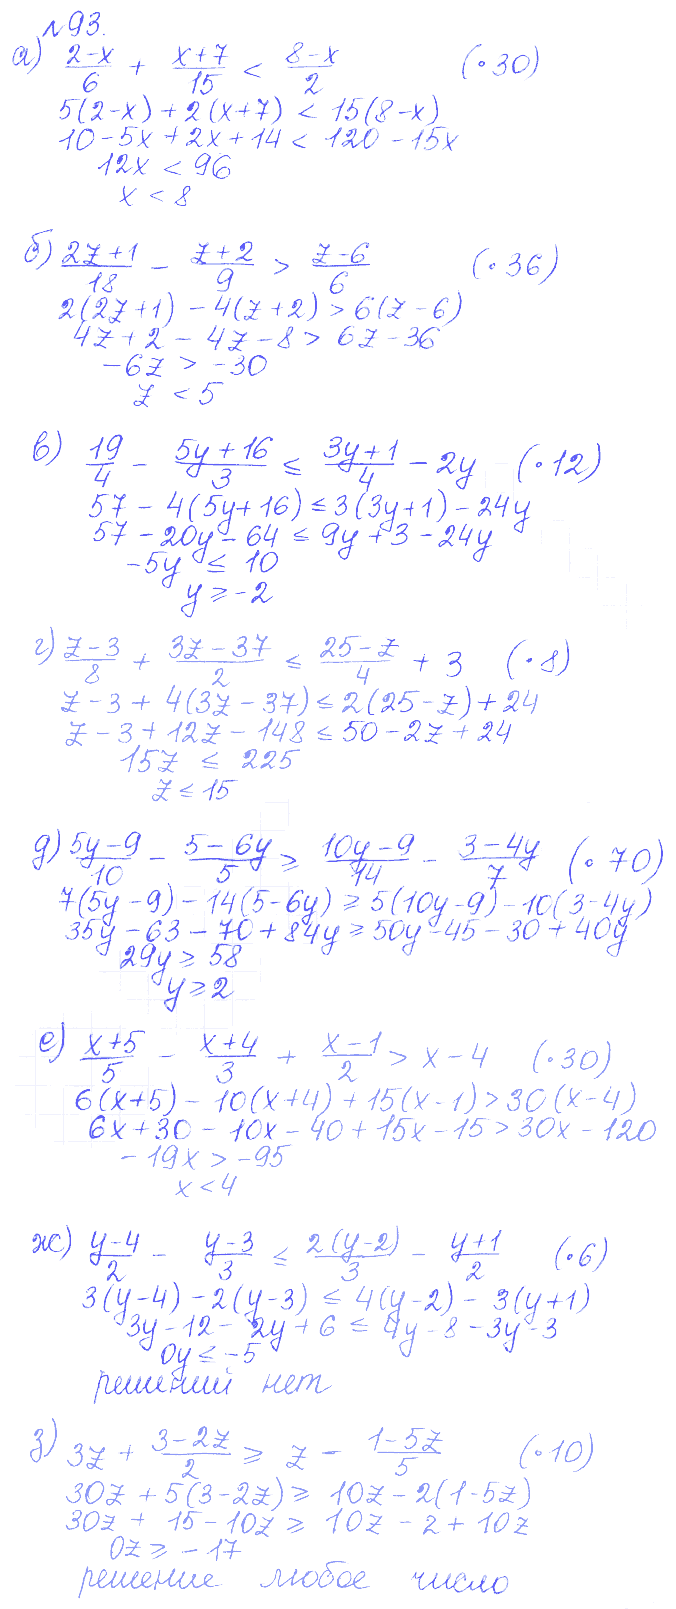 №93.
а) (2-x)/6 + (x+7)/15 < (8-x)/2 (·30)
5(2-x)+2(x+7) < 15(8-x)
10-5x+2x+14 < 120-15x
12x < 96
x < 8
б) (2z+1)/18 - (z+2)/9 > (z-6)/6 (·36)
2(2z+1) - 4(z+2) > 6(z-6)
4z+2 - 4z-8 > 6z-36
-6z > -30
z < 5
в) 19/4 - (5y+16)/3 ≤ (3y+1)/4 - 2y (·12)
57 - 4(5y+16) ≤ 3(3y+1) - 24y
57 - 20y - 64 ≤ 9y + 3 - 24y
-5y ≤ 10
y ≥ -2
г) (z-3)/8 + (3z-37)/2 ≤ (25-z)/4 + 3 (·8)
z-3 + 4(3z-37) ≤ 2(25-z) + 24
z-3+12z-148 ≤ 50-2z+24
15z ≤ 225
z ≤ 15
д) (5y-9)/10 - (5-6y)/5 ≥ (10y-9)/14 - (3-4y)/7 (·70)
7(5y-9) - 14(5-6y) ≥ 5(10y-9) - 10(3-4y)
35y-63-70+84y ≥ 50y-45-30+40y
29y ≥ 58
y ≥ 2
е) (x+5)/5 - (x+4)/3 + (x-1)/2 > x-4 (·30)
6(x+5) - 10(x+4) + 15(x-1) > 30(x-4)
6x+30-10x-40+15x-15 > 30x-120
-19x > -95
x < 4
ж) (y-4)/2 - (y-3)/3 ≤ 2(y-2)/3 - (y+1)/2 (·6)
3(y-4) - 2(y-3) ≤ 4(y-2) - 3(y+1)
3y-12-2y+6 ≤ 4y-8-3y-3
0y ≤ -5
решений нет
з) 3z + (3-2z)/2 ≥ z - (1-5z)/5 (·10)
30z + 5(3-2z) ≥ 10z - 2(1-5z)
30z + 15-10z ≥ 10z - 2 + 10z
0z ≥ -17
решение любое число